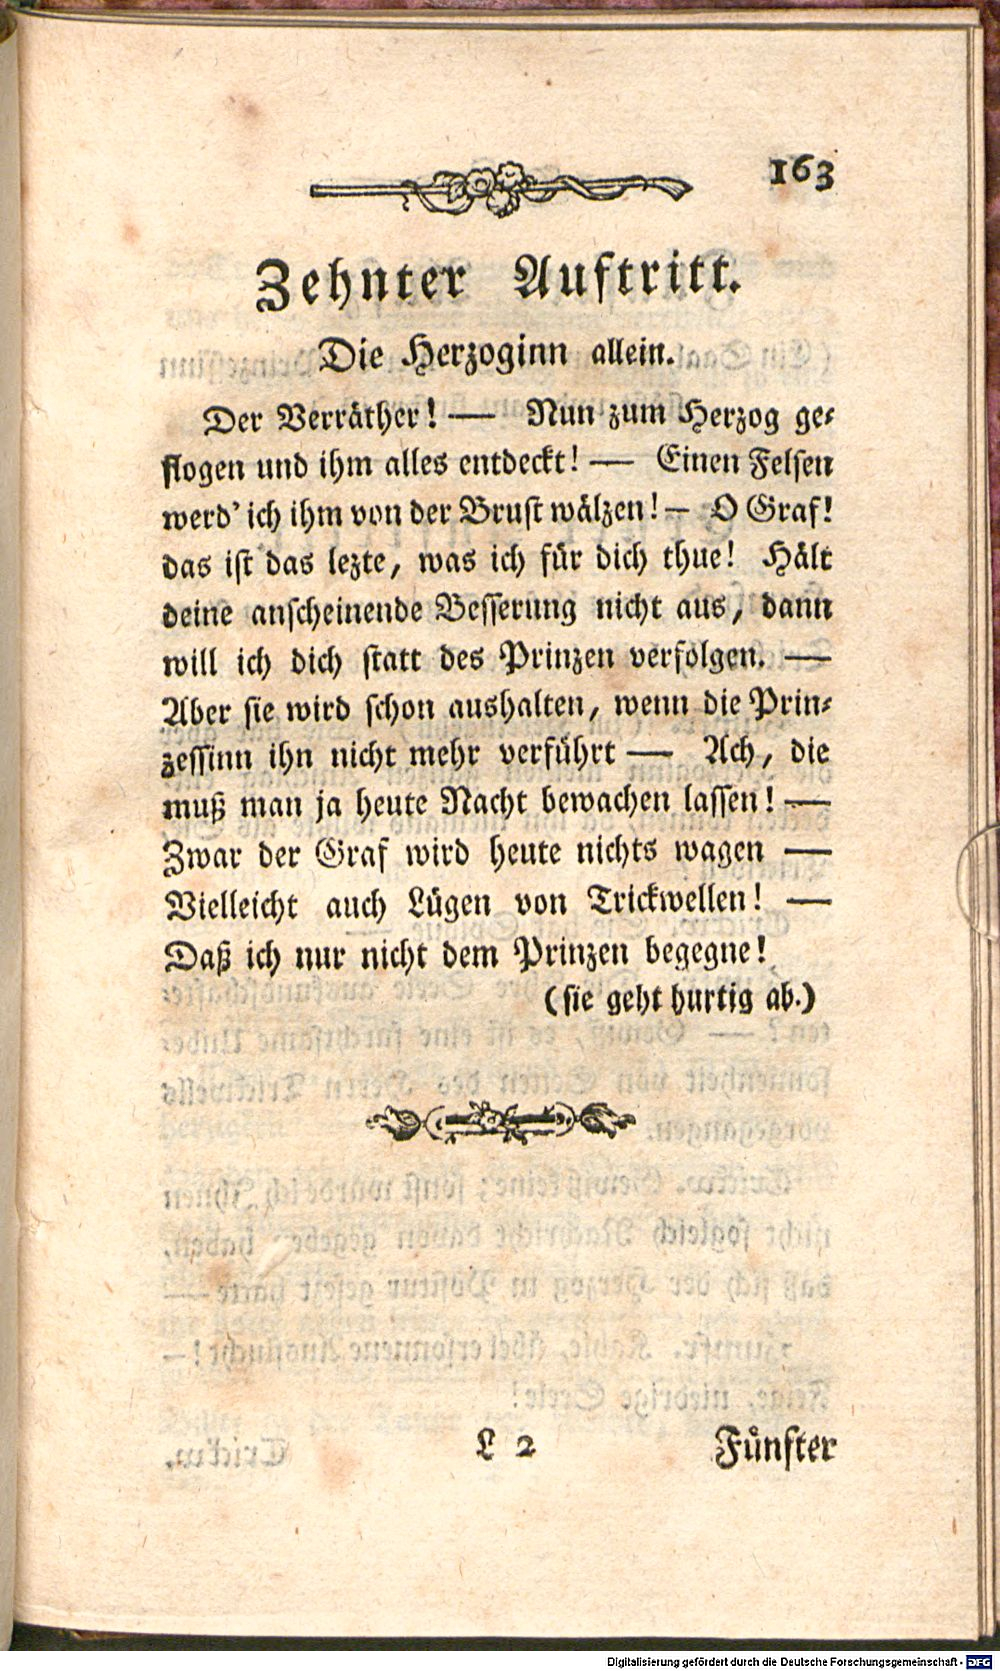 163
Zehnter Auftritt.
Die Herzoginn allein.
Der Verräther! — Nun zum Herzog ge-
flogen und ihm alles entdeckt! — Einen Felsen
werd' ich ihm von der Brust wälzen! — O Graf!
das ist das lezte, was ich für dich thue! Hält
deine anscheinende Besserung nicht aus, dann
will ich dich statt des Prinzen verfolgen. —
Aber sie wird schon aushalten, wenn die Prin-
zessinn ihn nicht mehr verführt — Ach, die
muß man ja heute Nacht bewachen lassen! —
Zwar der Graf wird heute nichts wagen —
Vielleicht auch Lügen von Trickwellen! —
Daß ich nur nicht dem Prinzen begegne!
(sie geht hurtig ab.)
L 2 Fünfter
Digitalisierung gefördert durch die Deutsche Forschungsgemeinschaft - DFG